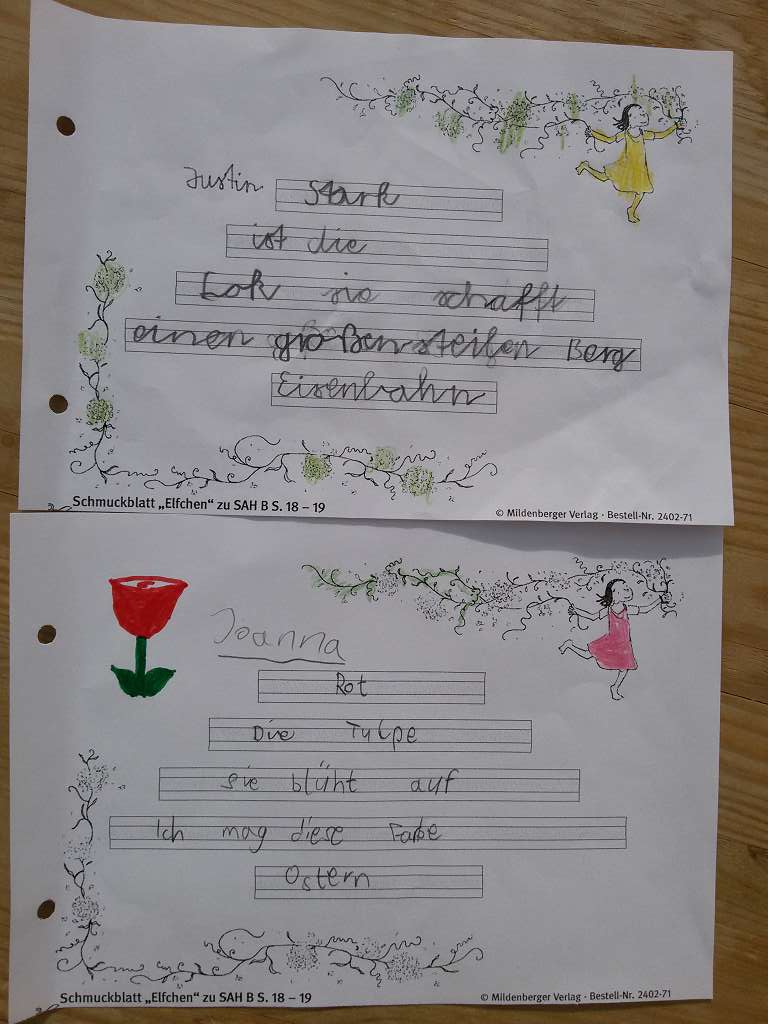 Justin Stark
ist die
Lok sie schafft
einen großen steilen Berg
Eisenbahn
Schmuckblatt „Elfchen“ zu SAH B S. 18 – 19
© Mildenberger Verlag · Bestell-Nr. 2402-71
Joanna
Rot
Die Tulpe
sie blüht auf
Ich mag diese Farbe
Ostern
Schmuckblatt „Elfchen“ zu SAH B S. 18 – 19
© Mildenberger Verlag · Bestell-Nr. 2402-71